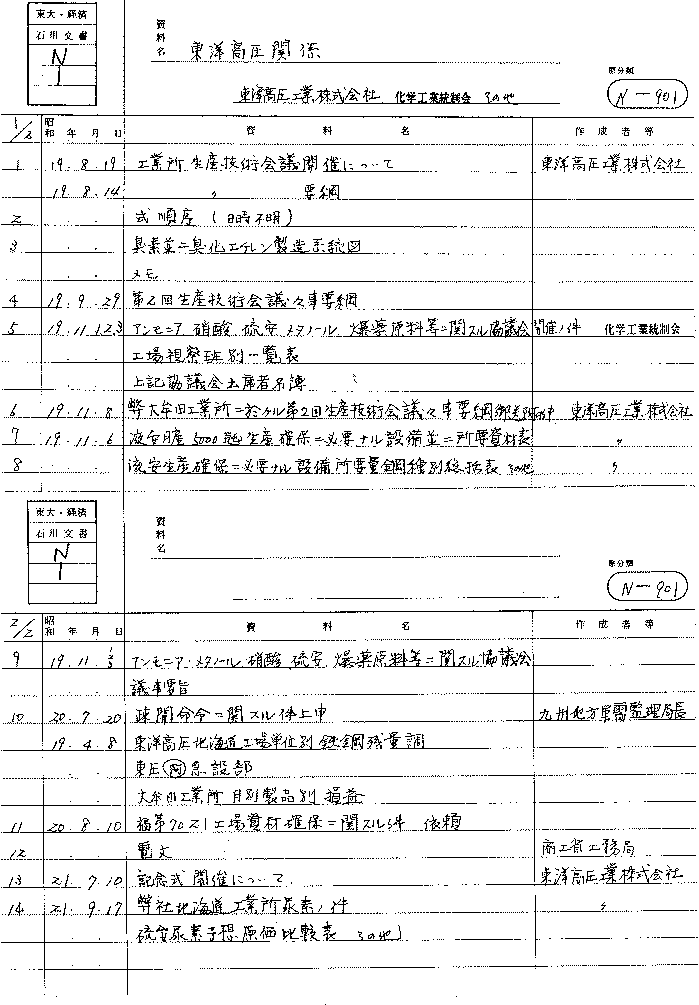 東大・経済
石川文書
N
1
資料名 東洋高圧関係
原分類
東洋高圧工業株式会社 化学工業統制会 その他
N-901
1/2 昭和 年 月 日 資料名 作成者等
1 19.8.19 工業所生産技術会議開催について 東洋高圧工業株式会社
19.8.14 〃 要綱
2 . . 式順序(日時不明)
3 . . 臭素並ニ臭化エチレン製造系統図
. . メモ
4 19.9.29 第2回生産技術会議々事要綱
5 19.11.1,2,3 アンモニア 硝酸 硫安 メタノール 爆薬原料等ニ関スル協議会開催ノ件 化学工業統制会
. . 工場視察班別一覧表
. . 上記協議会出席者名簿
6 19.11.8 弊大牟田工業所ニ於ケル第2回生産技術会議々事要綱御送附ノ件 東洋高圧工業株式会社
7 19.11.6 液安月産5000瓲生産確保ニ必要ナル設備並ニ所要資材表 〃
8 . . 液安生産確保ニ必要ナル設備所要量鋼種別総括表 その他 〃
東大・経済
石川文書
N
1
資料名
原分類
N-901
2/2 昭和 年 月 日 資料名 作成者等
9 19.11. アンモニア・メタノール 硝酸 硫安 爆薬原料等ニ関スル協議会
議事要旨
10 20.7.20 疎開命令ニ関スル件上申 九州地方軍需監理局長
19.4.8 東洋高圧北海道工場単位別鉄鋼残量調
. . 東圧 急設部
. . 大牟田工業所月別製品別損益
11 20.8.10 福第7021工場資材確保ニ関スル件 依頼
12 . . 電文 商工省工務局
13 21.7.10 記念式開催について 東洋高圧工業株式会社
14 21.9.17 弊社北海道工業所尿素ノ件 〃
. . 硫安尿素予想原価比較表 その他